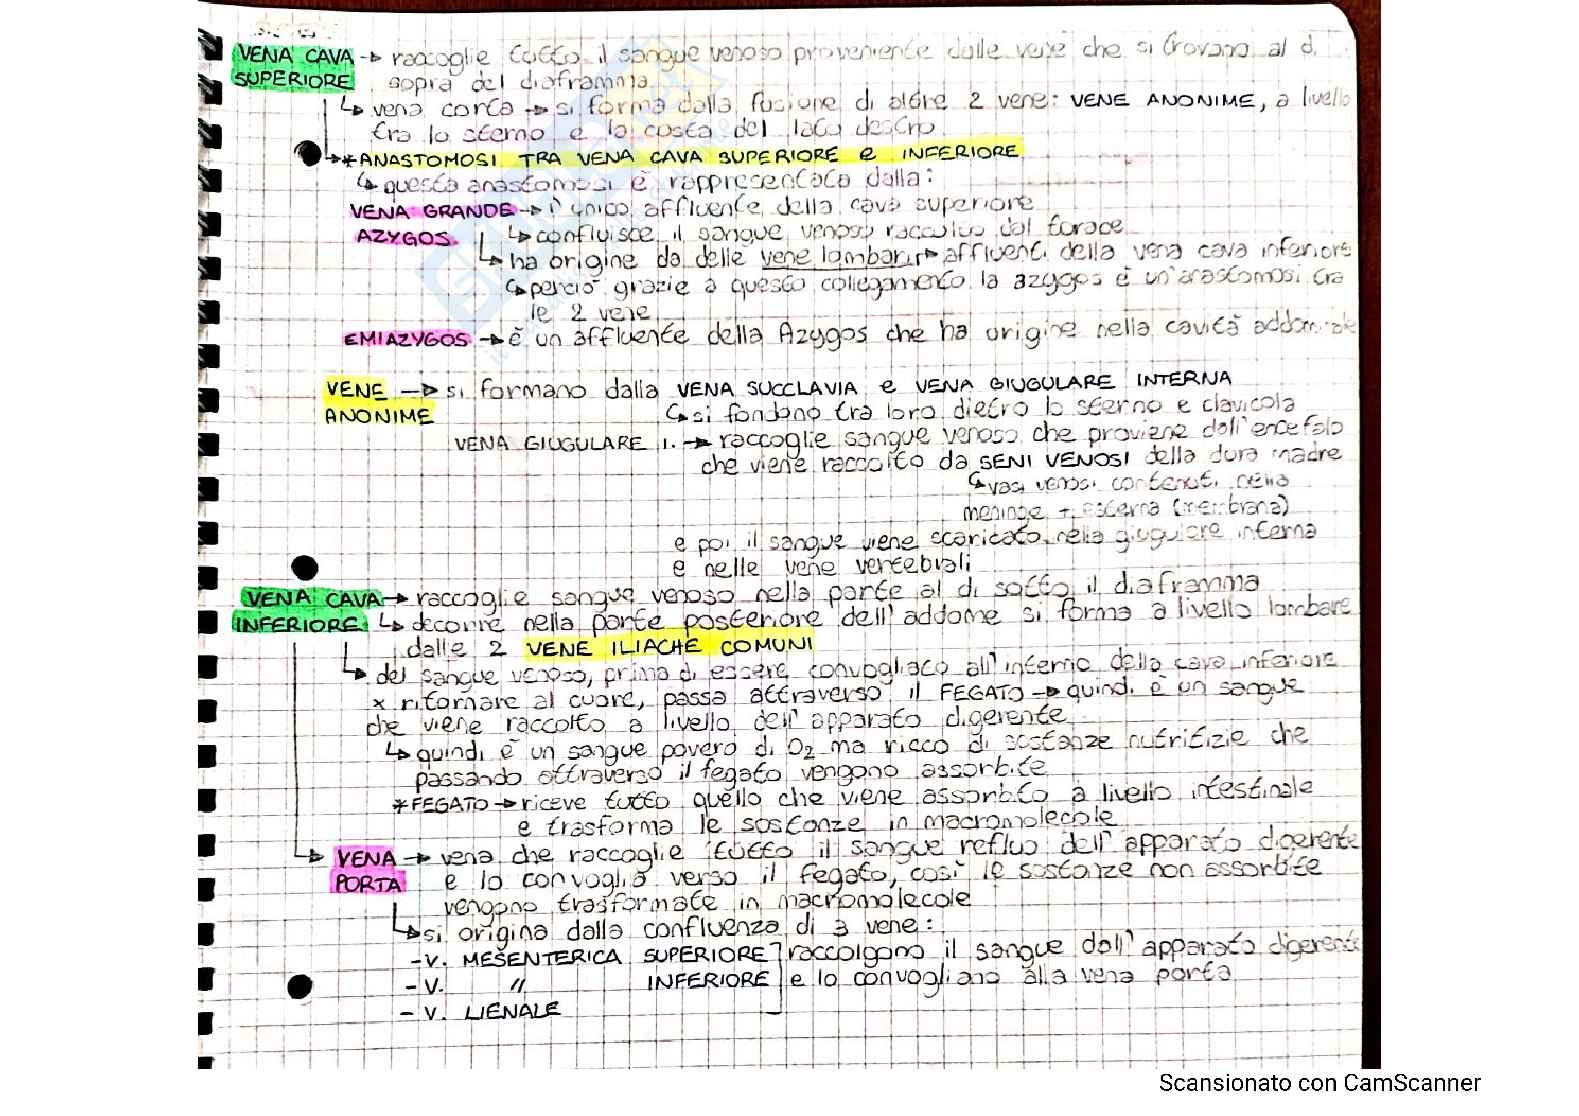 VENA CAVA → raccoglie tutto il sangue venoso proveniente dalle vene che si trovano al di
SUPERIORE sopra del diaframma
↳ vena corta → si forma dalla fusione di altre 2 vene: VENE ANONIME, a livello
tra lo sterno e la costa del lato destro
→ *ANASTOMOSI TRA VENA CAVA SUPERIORE e INFERIORE
↳ questa anastomosi è rappresentata dalla:
VENA GRANDE → l'unico affluente della cava superiore
AZYGOS ↳ confluisce il sangue venoso raccolto dal torace
↳ ha origine da delle vene lombari → affluenti della vena cava inferiore
↳ perciò grazie a questo collegamento la azygos è un'anastomosi tra
le 2 vene
EMIAZYGOS → è un affluente della Azygos che ha origine nella cavità addominale
VENE → si formano dalla VENA SUCCLAVIA e VENA GIUGULARE INTERNA
ANONIME ↳ si fondono tra loro dietro lo sterno e clavicola
VENA GIUGULARE I. → raccoglie sangue venoso che proviene dall'encefalo
che viene raccolto da SENI VENOSI della dura madre
↳ vasi venosi contenuti nella
meninge + esterna (membrana)
e poi il sangue viene scaricato nella giugulare interna
e nelle vene vertebrali
VENA CAVA → raccoglie sangue venoso nella parte al di sotto il diaframma
INFERIORE ↳ decorre nella parte posteriore dell'addome si forma a livello lombare
dalle 2 VENE ILIACHE COMUNI
↳ del sangue venoso, prima di essere convogliato all'interno della cava inferiore
x ritornare al cuore, passa attraverso il FEGATO → quindi è un sangue
che viene raccolto a livello dell'apparato digerente
↳ quindi è un sangue povero di O₂ ma ricco di sostanze nutritizie che
passando attraverso il fegato vengono assorbite
*FEGATO → riceve tutto quello che viene assorbito a livello intestinale
e trasforma le sostanze in macromolecole
→ VENA → vena che raccoglie tutto il sangue refluo dell'apparato digerente
PORTA e lo convoglia verso il fegato, così le sostanze non assorbite
vengono trasformate in macromolecole
↳ si origina dalla confluenza di 3 vene:
- V. MESENTERICA SUPERIORE raccolgono il sangue dall'apparato digerente
- V. " INFERIORE e lo convogliano alla vena porta
- V. LIENALE
Scansionato con CamScanner